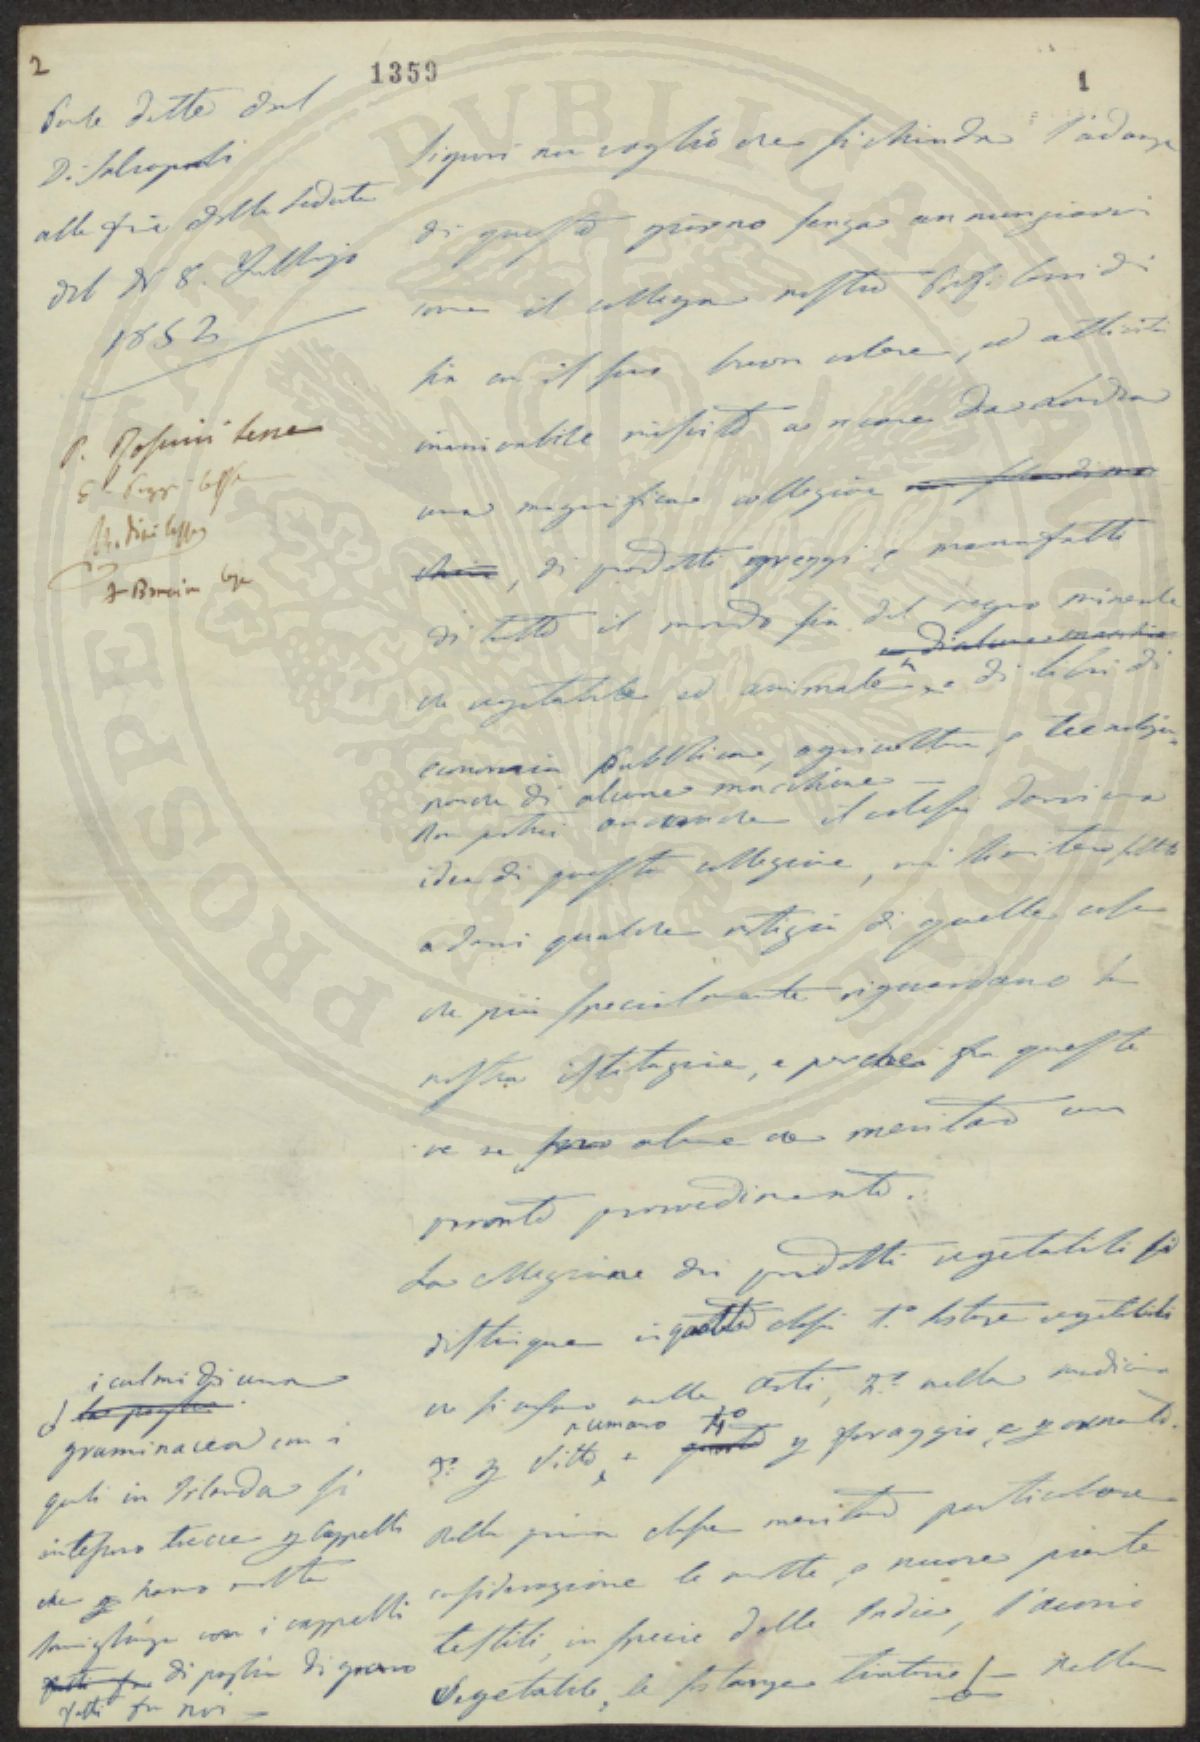 2
1359
1
Parole dette dal
D. Salvagnoli
alla fine della seduta
del dì 8. Luglio
1852
Signori non voglio che si chiuda l'adunanza
di questo giorno senza annunziarvi
come il collega nostro Prof. Corridi
sia con il suo buon volere, ed attività
inarrivabile riuscito a recare da Londra
una magnifica collezione
, di prodotti greggi e manufatti
di tutto il mondo sia del regno minerale
che vegetabile ed animale, e di libri di
economia pubblica, agricoltura, e tecnologia,
nonche di alcune macchine
Non potrei ancorche il volessi darvi una
idea di questa collezione, mi limiterò soltanto
a darvi qualche notizia di quelle cose
che più specialmente riguardano la
nostra istituzione, e perchè fra queste
ve ne sono alcune che meritano un
pronto provvedimento.
La collezione dei prodotti vegetabili si
distingue in quattro classi 1.º sostanze vegetabili
che si usano nelle Arti, 2.º nella medicina
3.º p vitto umano, e 4º p foraggio, e p ornamento.
Nella prima classe meritano particolare
considerazione le molte, e nuove piante
tessili, in specie delle Indie, l'avorio
vegetabile, le sostanze tintorie, nella
i culmi di una
graminacea con i
quali in Irlanda si
intessono trecce p cappelli
che hanno molta
somiglianza con i cappelli
di paglia di grano
fatti fra noi